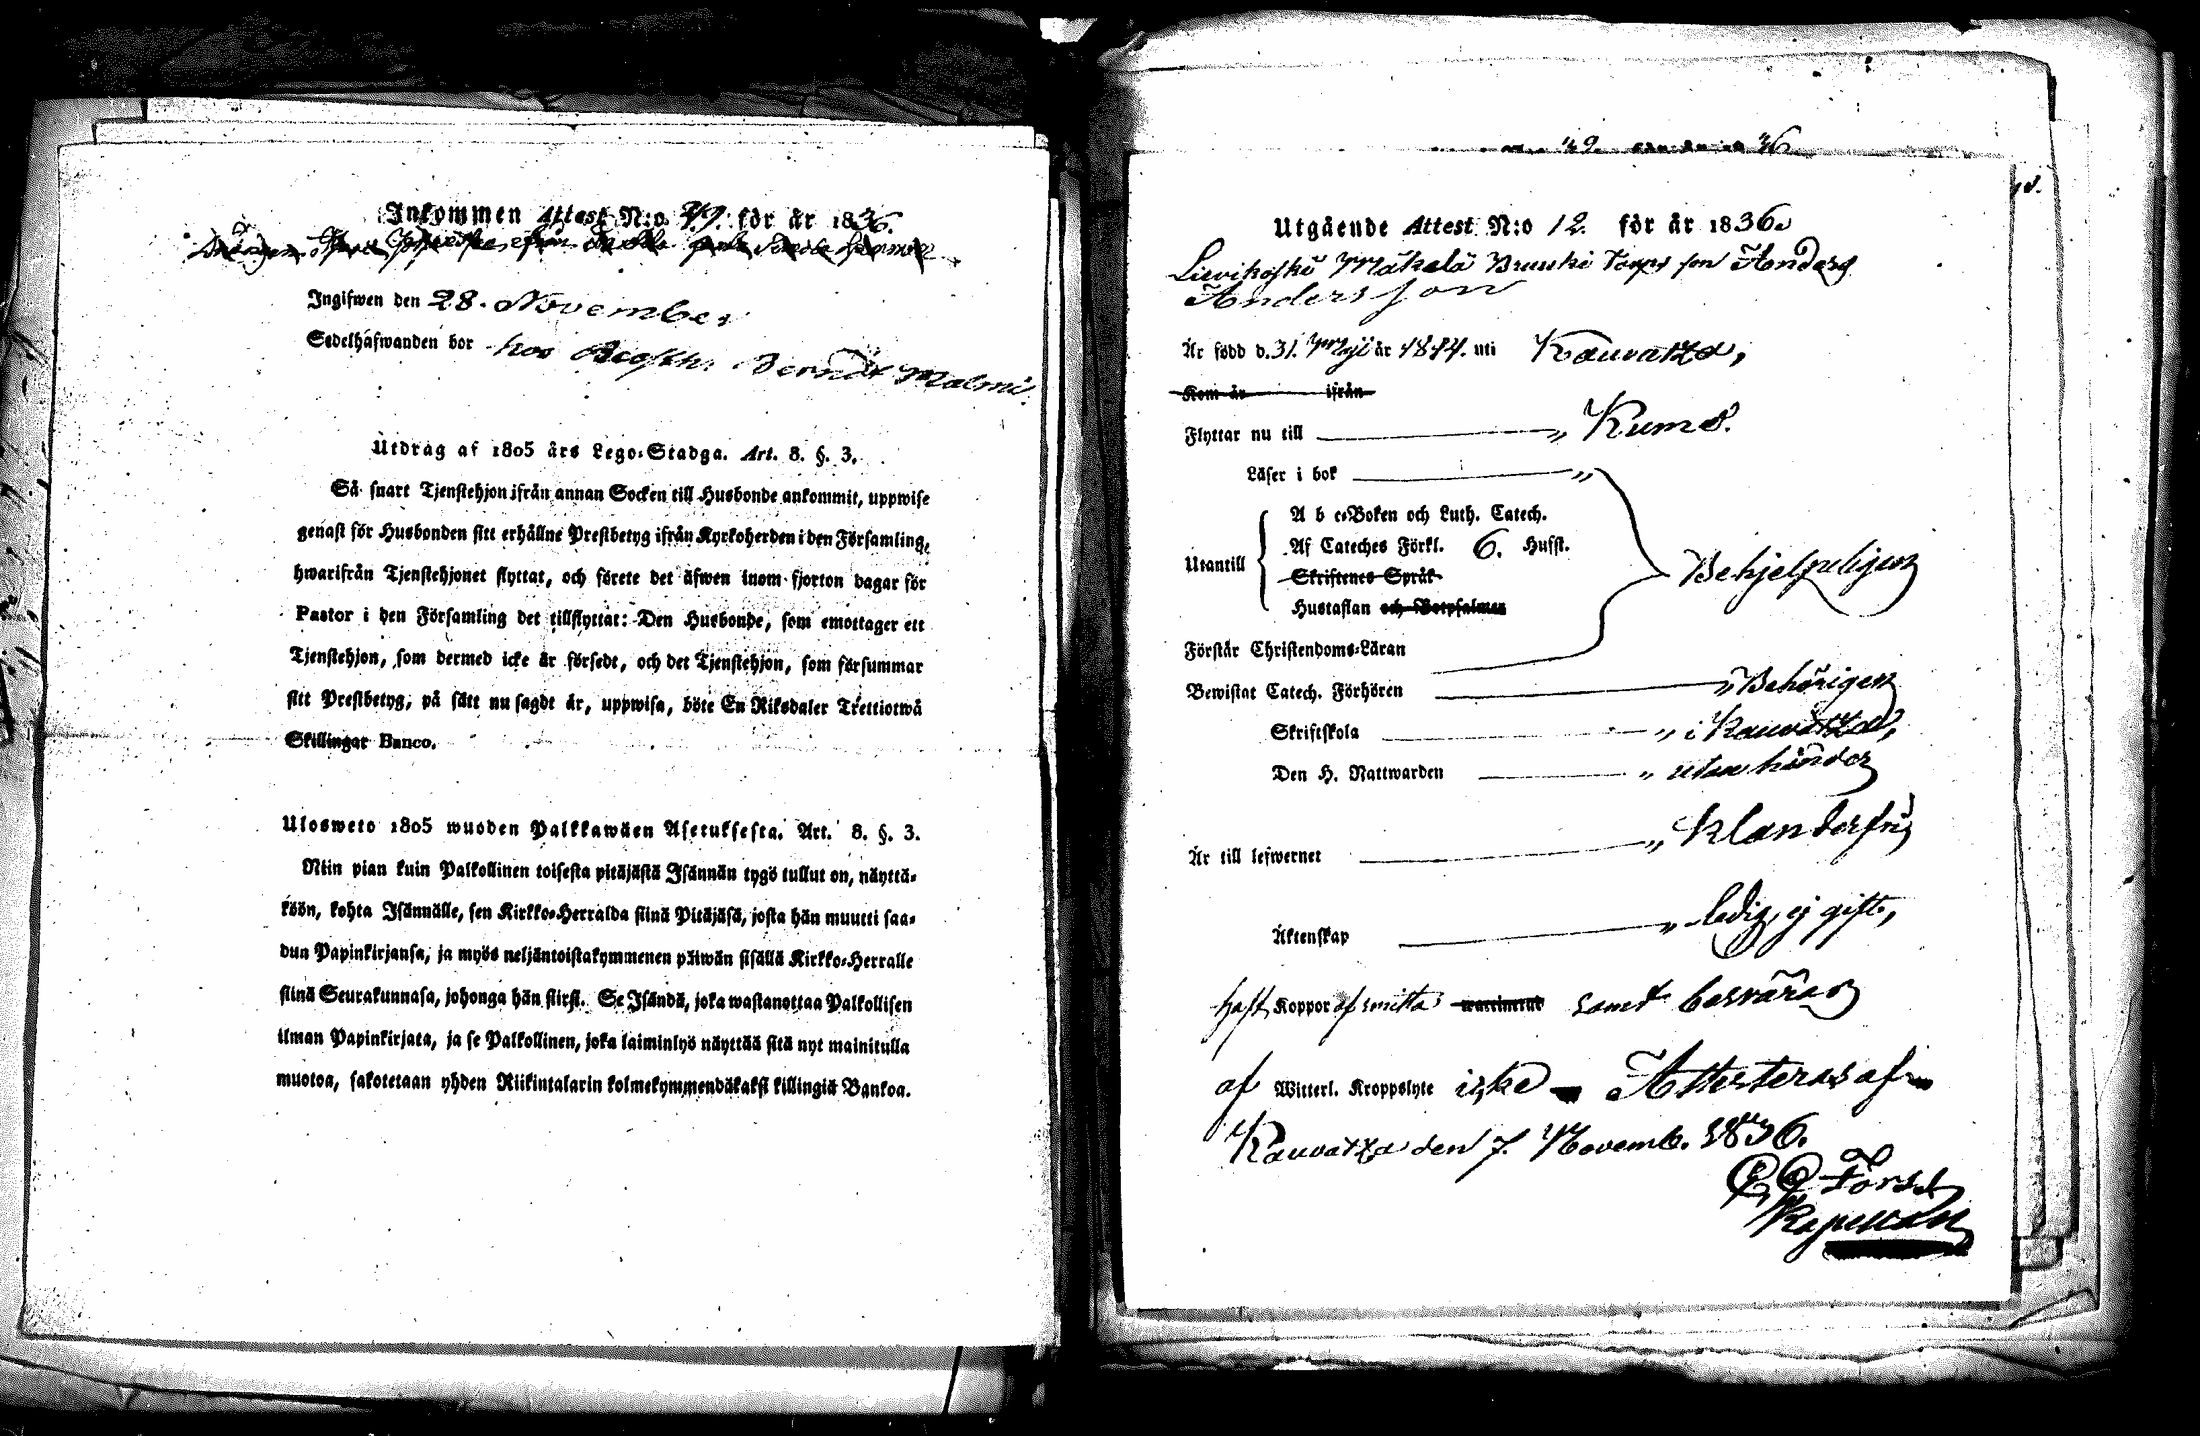 Inkommen Attest N:o 49. för år 1836.
Ingifwen den 28. November
Sedelhafwanden bor hos Berndt Malmi.
Utdrag af 1805 års Lego-Stadga. Art. 8. §. 3.
Så snart Tjenstehjon ifrån annan Socken till Husbonde ankommit, uppwise
genast för Husbonden sitt erhållne Prestbetyg ifrån Kyrkoherden i den Församling,
hwarifrån Tjenstehjonet flyttat, och förete det äfwen inom fjorton dagar för
Pastor i den Församling det tillflyttat: Den Husbonde, som emottager ett
Tjenstehjon, som dermed icke är försedt, och det Tjenstehjon, som försummar
sitt Prestbetyg, på sätt nu sagdt är, uppwisa, böte En Riksdaler Trettiotwå
Skillingar Banco.
Ulosweto 1805 wuoden Palkkawäen Asetuksesta. Art. 8. §. 3.
Niin pian kuin Palkollinen toisesta pitäjästä Isännän tygö tullut on, näyttä-
köön, kohta Isännälle, sen Kirkko-Herralda siinä Pitäjäsä, josta hän muutti saa-
dun Papinkirjansa, ja myös neljäntoistakymmenen päiwän sisällä Kirkko-Herralle
siinä Seurakunnasa, johonga hän siirsi. Se Isändä, joka wastanottaa Palkollisen
ilman Papinkirjata, ja se Palkollinen, joka laiminlyö näyttää sitä nyt mainitulla
muotoa, sakotetaan yhden Riikintalarin kolmekymmendäkaksi killingiä Bankoa.
49. 36
Utgående Attest N:o 12. för år 1836.
Lievikoski Mäkelä Bruuki Torps son Anders
Andersson
Är född d. 31. Maji år 1814. uti Kauvatza,
Kom år ifrån
Flyttar nu till " Kumo.
Läser i bok "
A b c-Boken och Luth. Catech.
Af Cateches Förkl. 6. Hufst.
Utantill Behjelpeligen
Skriftenes Språk
Hustaflan och Botpsalmer
Förstår Christendoms-Läran
Bewistat Catech. Förhören " Behörigen
Skriftskola " i Kauvatza,
Den H. Nattwarden " utan hinder
Är till lefwernet " Klanderfri
Äktenskap " ledig, ej gift,
haft Koppor af smitta samt besväras
af Witterl. Kroppslyte icke Attesteras af
Kauvatza den 7. Novemb. 1836.
Forss
Kapellan